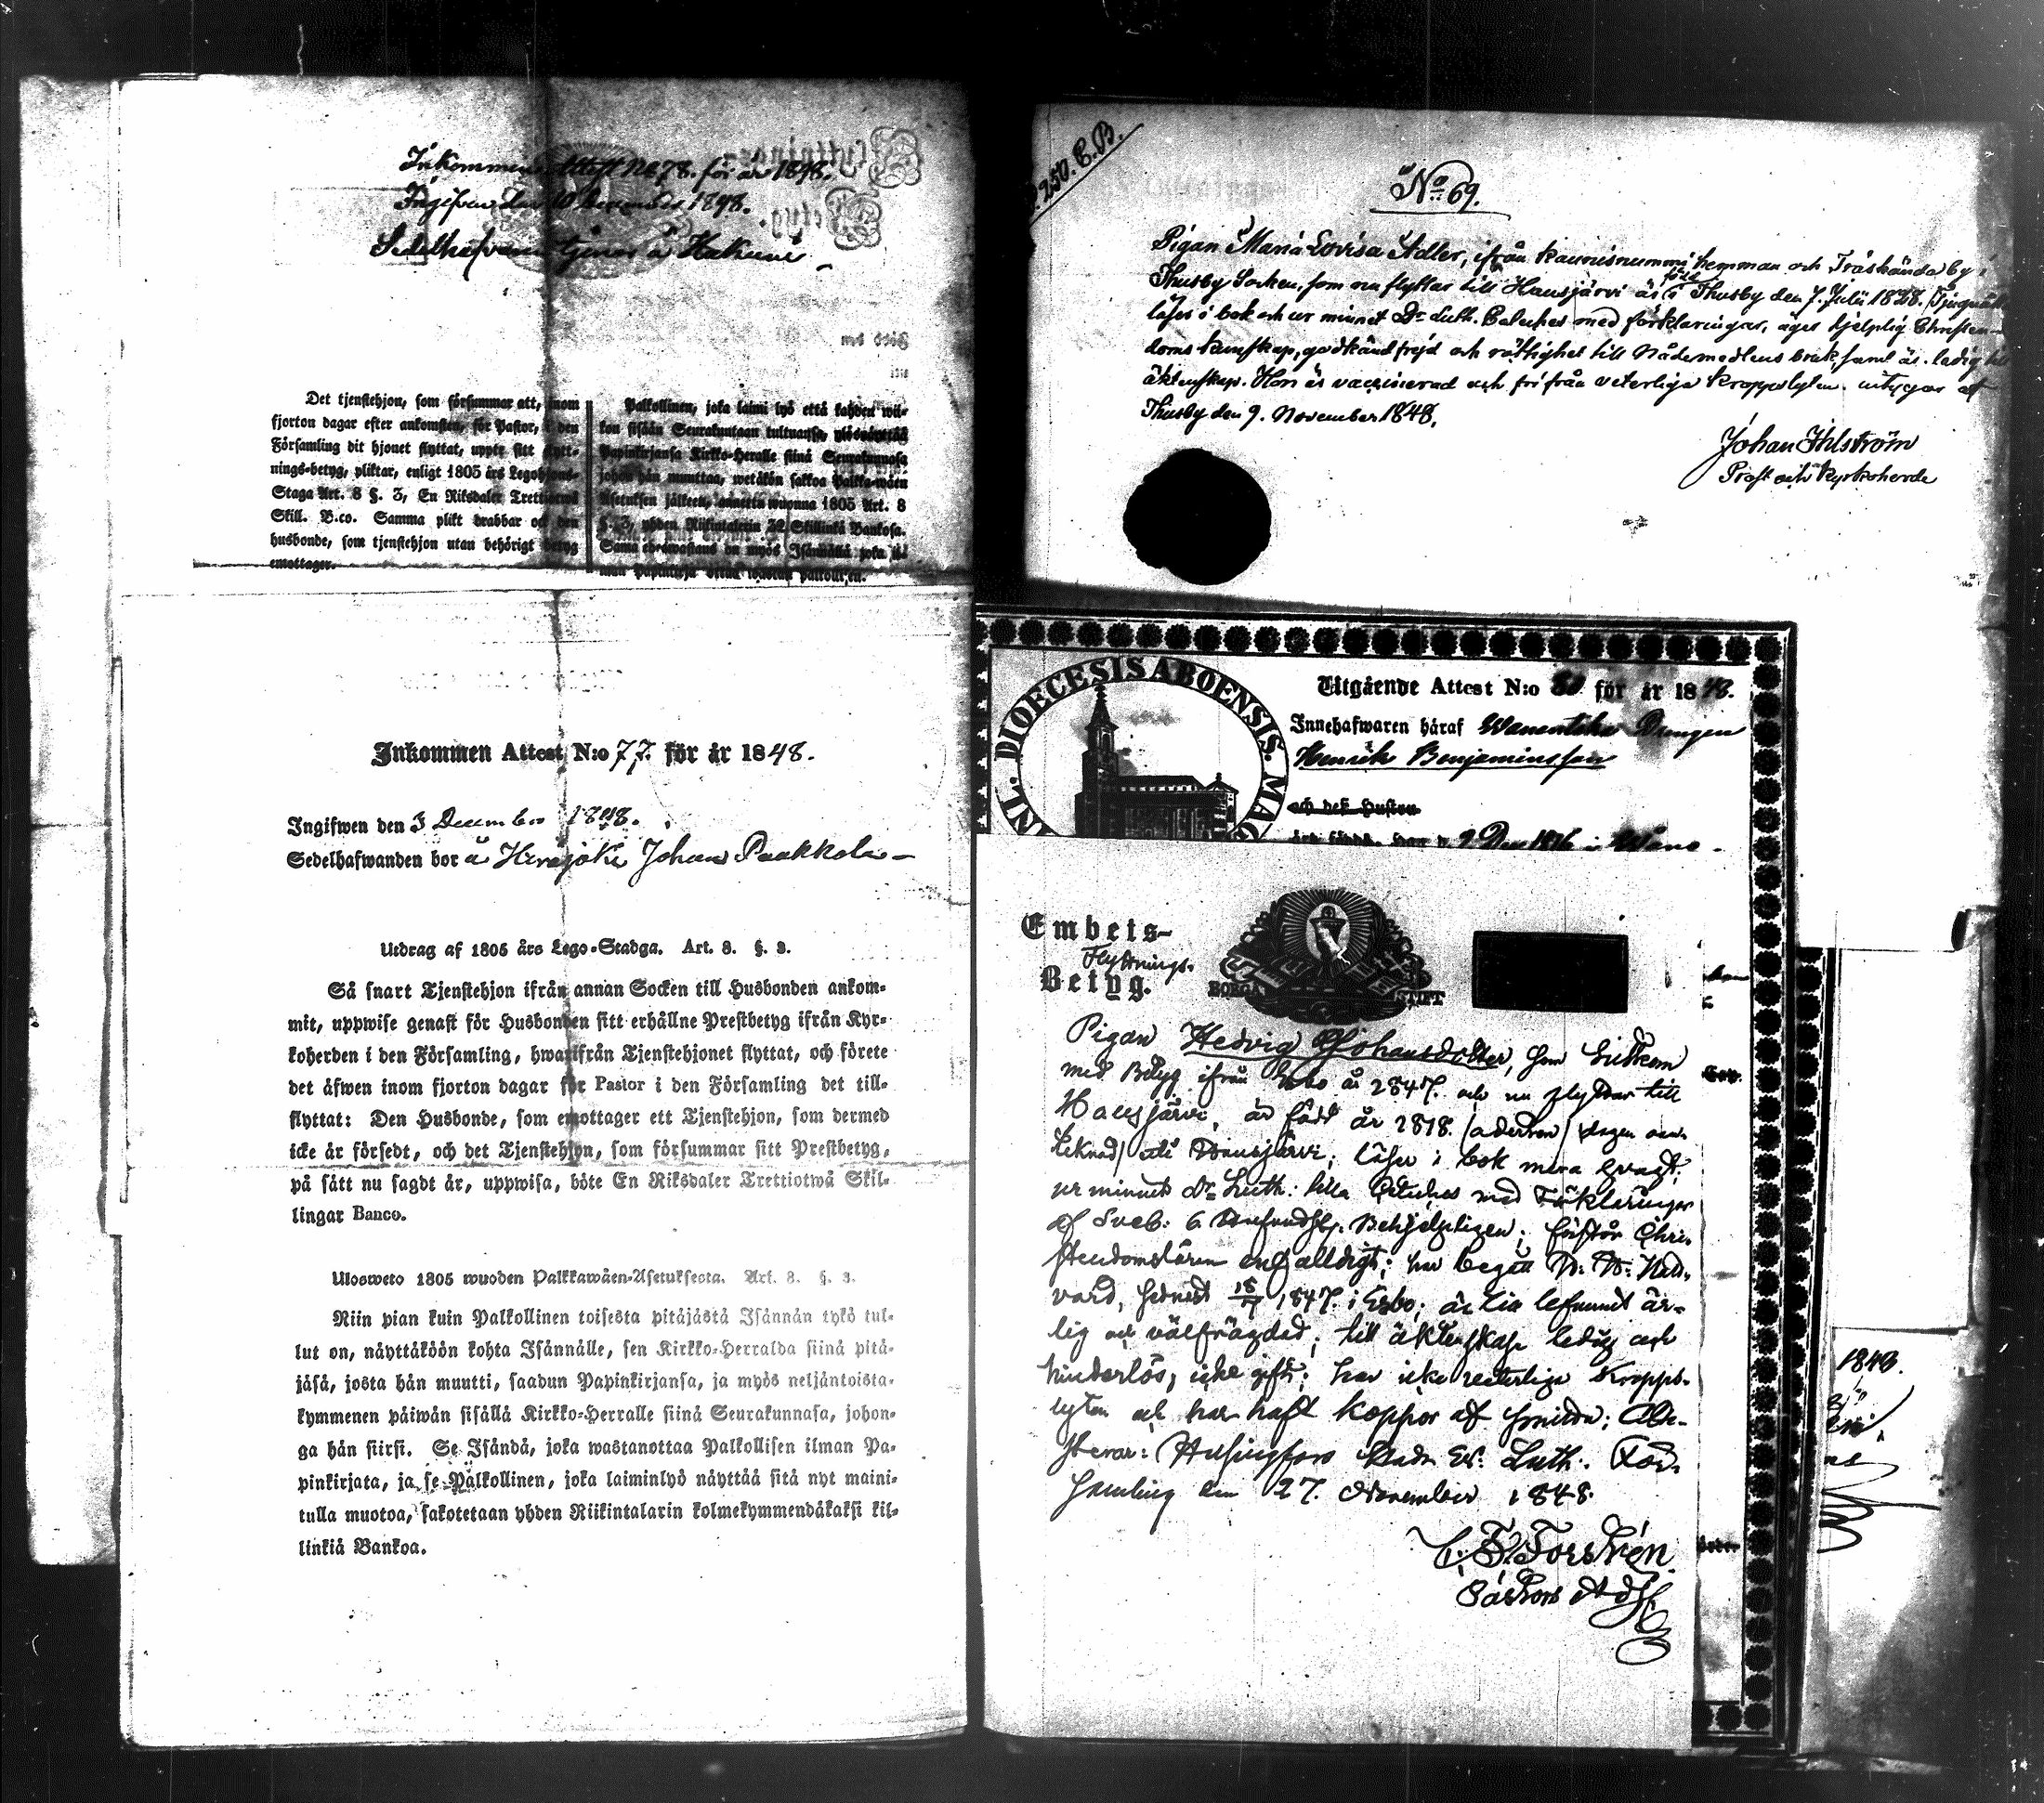 Inkommen Attest No 78. för år 1848.
Ingifven den 10 1848.
Sedelhafvanden tjenar å Hakuni
Det tjenstehjon, som försummar att, inom
fjorton dagar efter ankomsten, för Pastor, i den
Församling dit hjonet flyttat, uppte sitt flytt-
nings-betyg, pliktar, enligt 1805 års Legohjons-
Staga Art. 8 §. 3, En Riksdaler Trettiotwå
Skill. B:co. Samma plikt drabbar ock den
husbonde, som tjenstehjon utan behörigt betyg
emottager.
Palkollinen, joka laimi lyö että kahden wii-
kon sisään Seurakuntaan tultuansa, ylösnäyttää
Papinkirjansa Kirkko-Heralle siinä Seurakunnasa
johon hän muuttaa, wetäkön sakkoa Palkka-wäen
Asetuksen jälkeen, annettu wuonna 1805 Art. 8
§. 3, yhden Riikintalerin 32 Skillinkiä Bankosa.
Sama edeswastaus on myös Isännällä joka il-
man Papinkirja ottaa wastan palkollisen.
Inkommen Attest N:o 77. för år 1848.
Ingifwen den 3 December 1848.
Sedelhafwanden bor å Hirvijoki Johan Paakkola
Utdrag af 1805 års Lego-Stadga. Art. 8. §. 3.
Så snart Tjenstehjon ifrån annan Socken till Husbonden ankom-
mit, uppwise genast för Husbonden sitt erhållne Prestbetyg ifrån Kyr-
koherden i den Församling, hwarifrån Tjenstehjonet flyttat, och förete
det äfwen inom fjorton dagar för Pastor i den Församling det till-
flyttat: Den Husbonde, som emottager ett Tjenstehjon, som dermed
icke är försedt, och det Tjenstehjon, som försummar sitt Prestbetyg,
på sätt nu sagdt är, uppwisa, böte En Riksdaler Trettiotwå Skil-
lingar Banco.
Ulosweto 1805 wuoden Palkkawäen-Asetuksesta. Art. 8. §. 3.
Niin pian kuin Palkollinen toisesta pitäjästä Isännän tykö tul-
lut on, näyttäköön kohta Isännälle, sen Kirkko-Herralda siinä pitä-
jäsä, josta hän muutti, saadun Papinkirjansa, ja myös neljäntoista-
kymmenen päiwän sisällä Kirkko-Herralle siinä Seurakunnasa, johon-
ga hän siirsi. Se Isändä, joka wastanottaa Palkollisen ilman Pa-
pinkirjata, ja se Palkollinen, joka laiminlyö näyttää sitä nyt maini-
tulla muotoa, sakotetaan yhden Riikintalarin kolmekymmendäkaksi kil-
linkiä Bankoa.
p. 250. C.B.
No 69.
Pigan Maria Lovisa Adler, ifrån Kaunisnummi hemman och Träskända by i
Thusby Socken, som nu flyttar till Hausjärvi är född i Thusby den 7. Julii 1828.
läser i bok och ur minnet Dr Luth. Cateches med förklaringar, äger hjelplig Christen-
doms kunskap, godkänd frejd och rättighet till Nådemedlens bruk, samt är ledig till
äktenskap. Hon är vaccinerad och fri från veterliga kroppslyten. intygar af
Thusby den 9. November 1848.
Johan Ihlström
Prost och Kyrkoherde
DIOECESIS ABOENSIS. MAG
Utgående Attest N:o 80 för år 1848.
Innehafwaren häraf Wanentaka Drengen
Henrik Benjaminsson
och dess Hustru
Embets-
Flyttnings-
Betyg.
BORGÅ STIFT
Pigan Hedvig Johansdotter, som inkom
med Betyg ifrån Esbo år 1847. och nu flyttar till
Hausjärvi, är född år 1818. (aderton) dagen oan-
teknad) uti Hausjärvi; läser i bok
ur minnet Dr Luth: lilla Cateches med Förklaringar
af Sveb: Behjelpligen; förstår Chri-
stendomsläran enfalldigt; har begått H. H. Natt-
vard, sednast 18/7 1847. i Esbo; är befunnit är-
lig och välfrägdad; till äktenskap ledig och
hinderlös, icke gift; har icke veterliga Kropps-
lyten och har haft koppor af smitta; Att-
sterar: Helsingfors Stads Ev. Luth. För-
samling den 27. November 1848.
Forstrén
Pastors Adj.
1848.